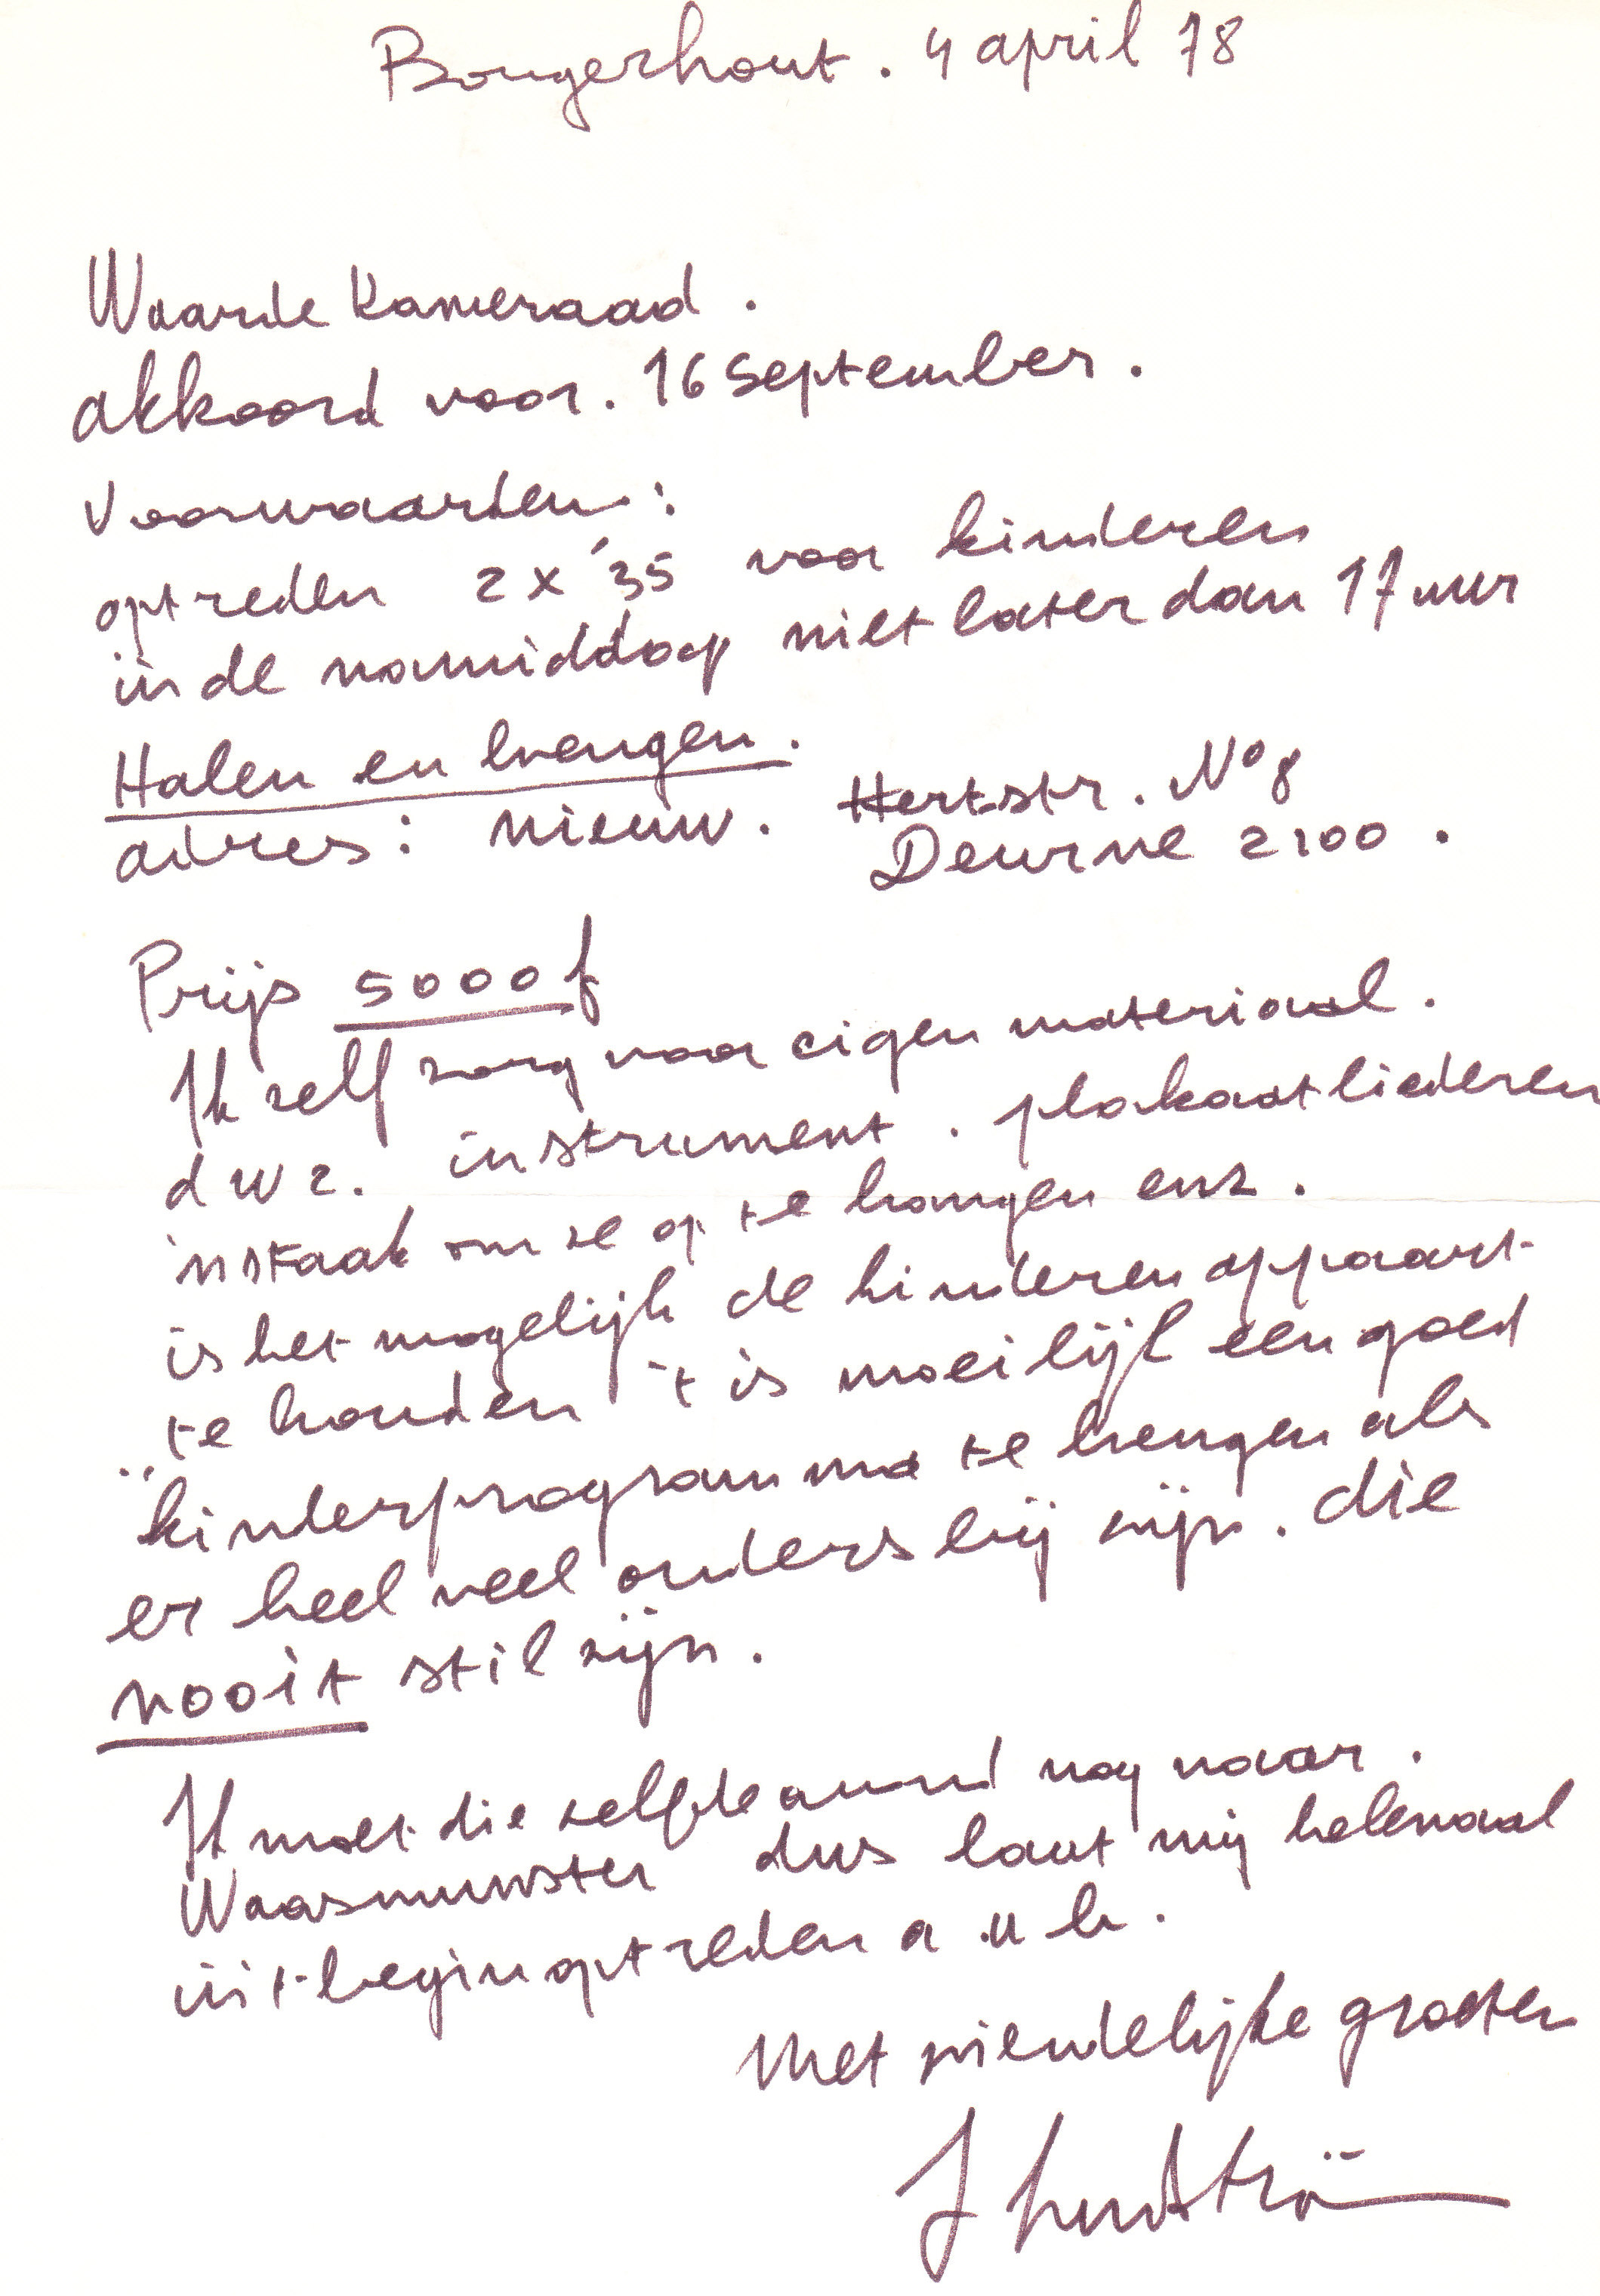 Borgerhout. 4 april 78
Waarde Kameraad.
akkoord voor. 16 September.
Voorwaarden:
optreden 2 x '35 voor kinderen
in de namiddag niet later dan 17 uur
Halen en brengen.
adres: nieuw. Hertstr. N° 8
Deurne 2100.
Prijs 5000 f
Ik zelf zorg voor eigen materiaal.
dwz. instrument. plakaatliederen
'n staak om ze op te hangen enz.
is het mogelijk de kinderen appaart
te houden 't is moeilijk een goed
kinderprogramma te brengen als
er heel veel ouders bij zijn. die
nooit stil zijn.
Ik moet die zelfde avond nog naar.
Waasmunster dus laat mij helemaal
in 't begin optreden a.u.b.
Met vriendelijke groeten